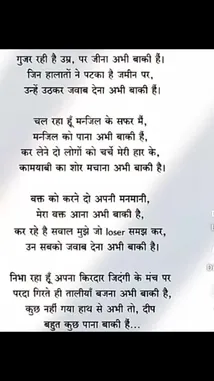 गुजर रही है उम्र, पर जीना अभी बाकी हैं।
जिन हालातों ने पटका है जमीन पर,
उन्हें उठकर जवाब देना अभी बाकी हैं।
चल रहा हूँ मन्जिल के सफर मैं,
मन्जिल को पाना अभी बाकी हैं,
कर लेने दो लोगों को चर्चे मेरी हार के,
कामयाबी का शोर मचाना अभी बाकी है।
वक्त को करने दो अपनी मनमानी,
मेरा वक्त आना अभी बाकी है,
कर रहे है सवाल मुझे जो loser समझ कर,
उन सबको जवाब देना अभी बाकी है।
निभा रहा हूँ अपना किरदार जिदंगी के मंच पर
परदा गिरते ही तालीयाँ बजना अभी बाकी है,
कुछ नहीं गया हाथ से अभी तो, दीप
बहुत कुछ पाना बाकी हैं...